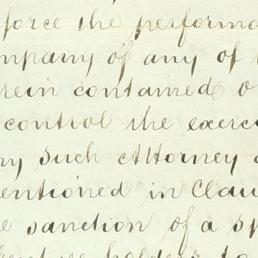 force the performa
mpany of any of
rein contained o
control the exerc
ny such Attorney
entioned in Clau
e sanction of a sp
enture holders to